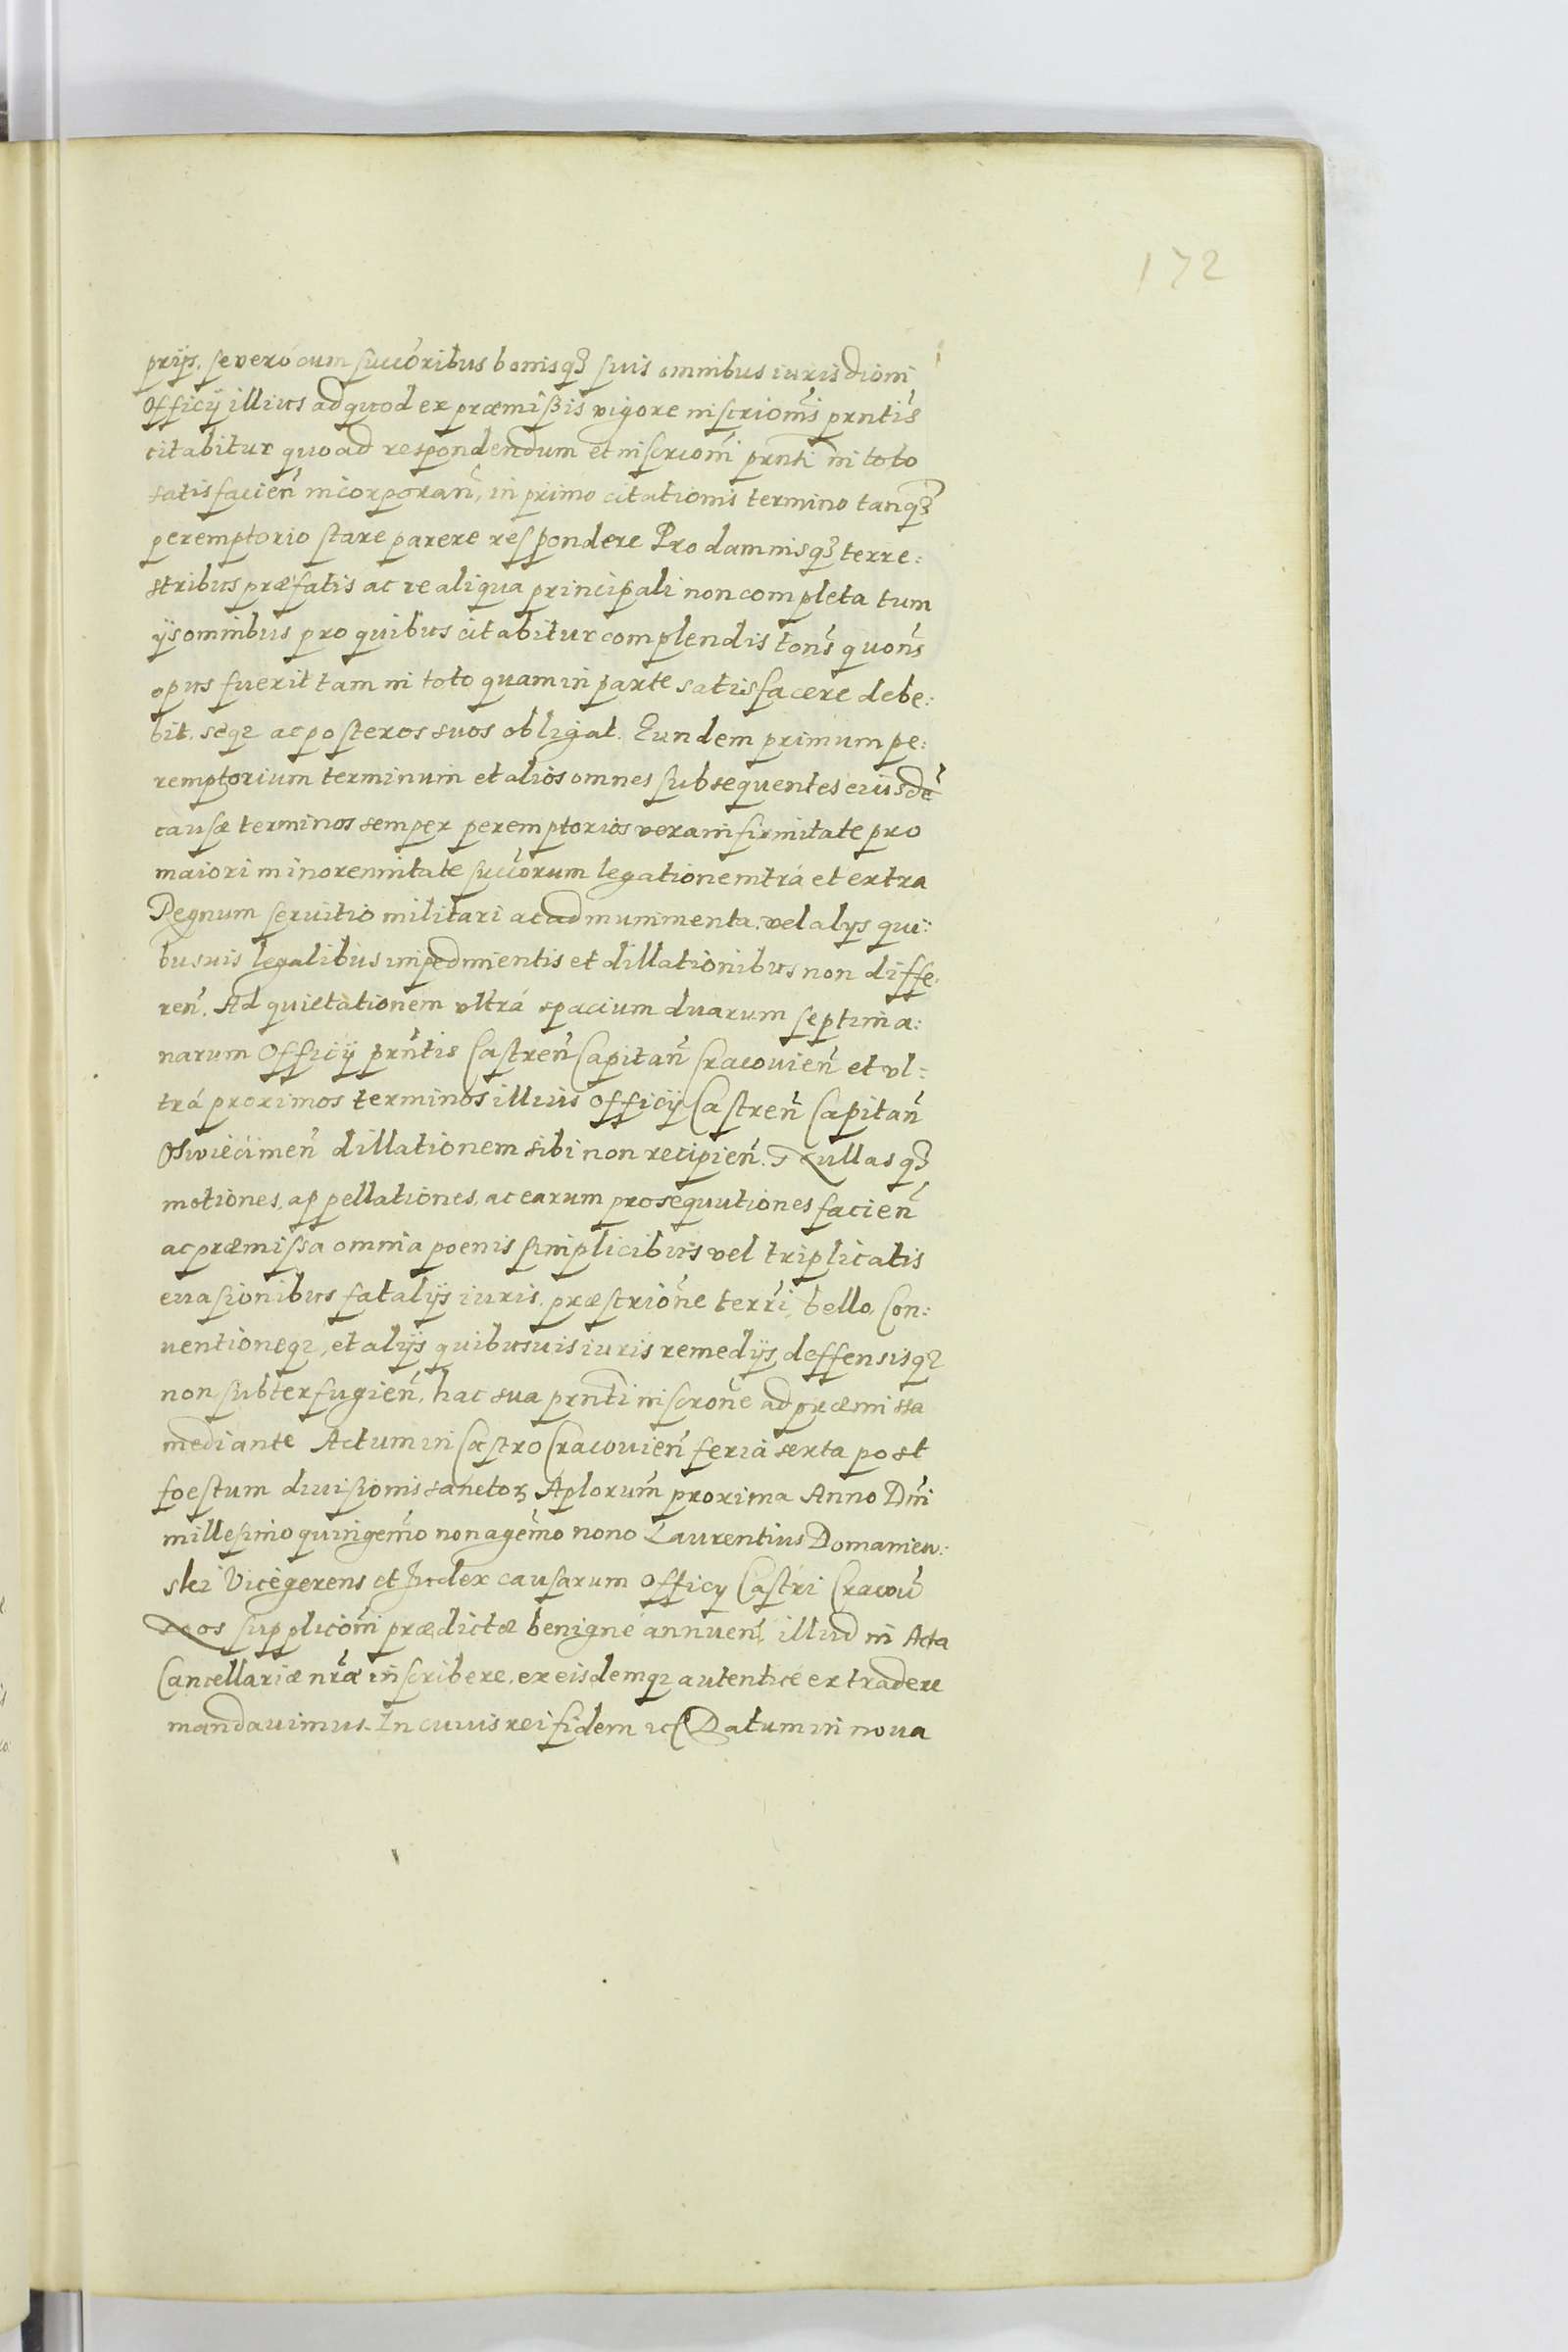 172
prijs. se vero cum succoribus bonisq3 suis omnibus iurisdioni
Officij illius ad quod ex præmißis vigore inscrionis prntis
citabitur quo ad respondendum et inscrioni prnti in toto
satisfacien̄ incorporan̄, in primo citationis termino tanq3
peremptorio stare parere respondere Pro damnisq3 terre:
stribus præfatis ac re aliqua principali non completa tum
ijs omnibus pro quibus citabitur complendis tons quons
opus fuerit tam in toto quam in parte satisfacere debe:
bit. seq2 ac posteros suos obligat. Eundem primum pe:
remptorium terminum et alios omnes subsequentes eiusdē
causæ terminos semper peremptorios vera infirmitate pro
maiori minorennitate succorum legatione intrá et extra
Regnum seruitio militari ac ad munimenta. vel alijs qui:
busuis legalibus impedimentis et dillationibus non diffe:
ren̄. Ad quietationem vltrá spacium duarum septima:
narum Officij prntis Castren̄ Capitan̄ Cracouien̄ et vl:
trá proximos terminos illius Officij Castren̄ Capitan̄
Oswiecimen̄ dillationem sibi non recipien̄. Nullas q3
motiones, appellationes, ac earum prosequutiones facien̄
ac præmissa omnia poenis simplicibus vel triplicatis
euasionibus fatalijs iuris. præscrione terri, bello, Con:
uentioneq2, et alijs quibusuis iuris remedijs deffensisq2
non subterfugien̄. hac sua prnti inscrone ad præmissa
mediante Actum in Castro Cracouien̄ feria sexta post
foestum diuisionis sanctoꝝ Aplorum proxima Anno Dni
millesimo quingemo nonagemo nono Laurentius Domaniew:
ski Vicegerens et Iudex causarum Officij Castri Cracou̅
Nos supplicōni prædictæ benigné annuen̄, illud in Acta
Cancellariæ nræ inscribere. ex eisdemq2 autenticé extradere
mandauimus. In cuius rei fidem etc Datum in noua